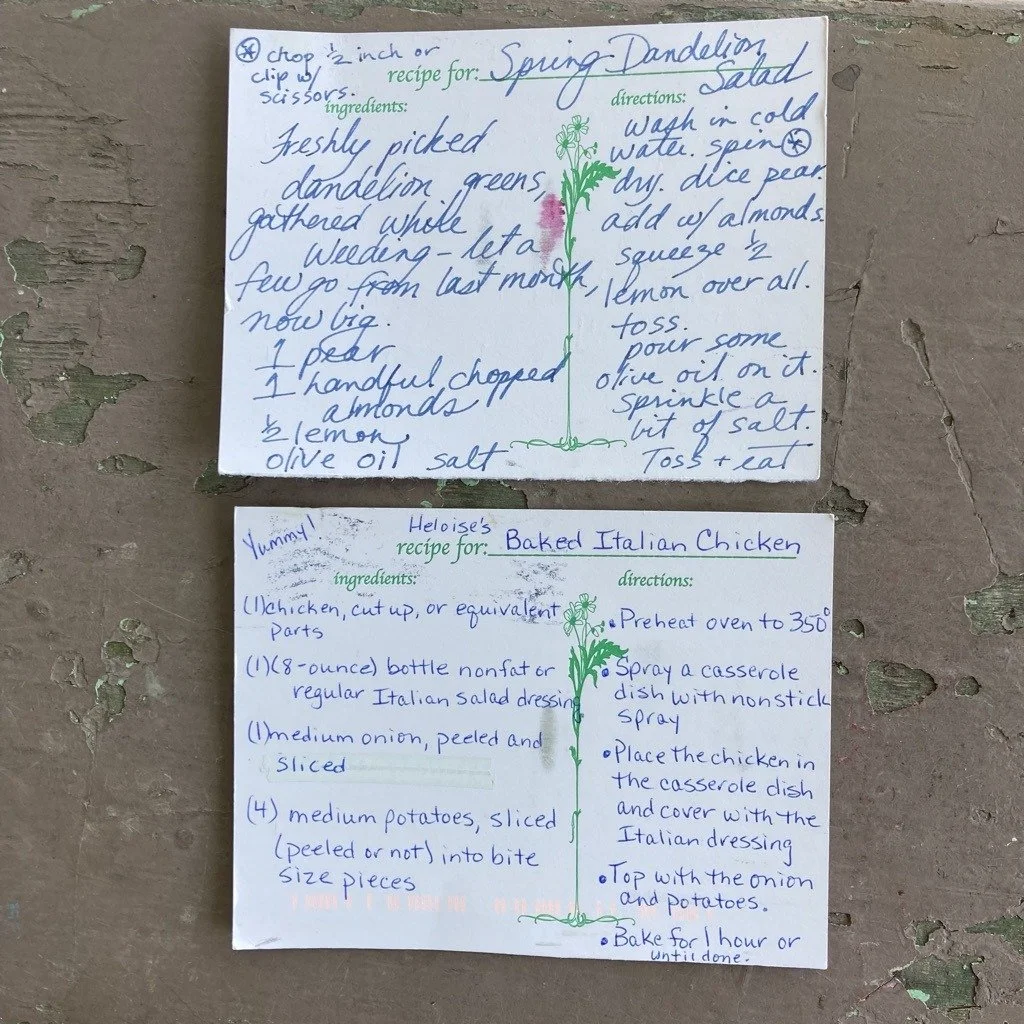 ⊛ chop ½ inch or
clip w/
scissors.
recipe for: Spring Dandelion
Salad
ingredients:
Freshly picked
dandelion greens,
gathered while
weeding - let a
few go from last month,
now big.
1 pear
1 handful chopped
almonds
½ lemon
olive oil salt
directions:
wash in cold
water. spin ⊛
dry. dice pear.
add w/ almonds.
squeeze ½
lemon over all.
toss.
pour some
olive oil on it.
sprinkle a
bit of salt.
Toss + eat
Yummy!
Heloise's
recipe for: Baked Italian Chicken
ingredients:
(1) chicken, cut up, or equivalent
parts
(1) (8-ounce) bottle nonfat or
regular Italian salad dressing
(1) medium onion, peeled and
sliced
(4) medium potatoes, sliced
(peeled or not) into bite
size pieces
directions:
• Preheat oven to 350°
• Spray a casserole
dish with nonstick
spray
• Place the chicken in
the casserole dish
and cover with the
Italian dressing
• Top with the onion
and potatoes.
• Bake for 1 hour or
until done.